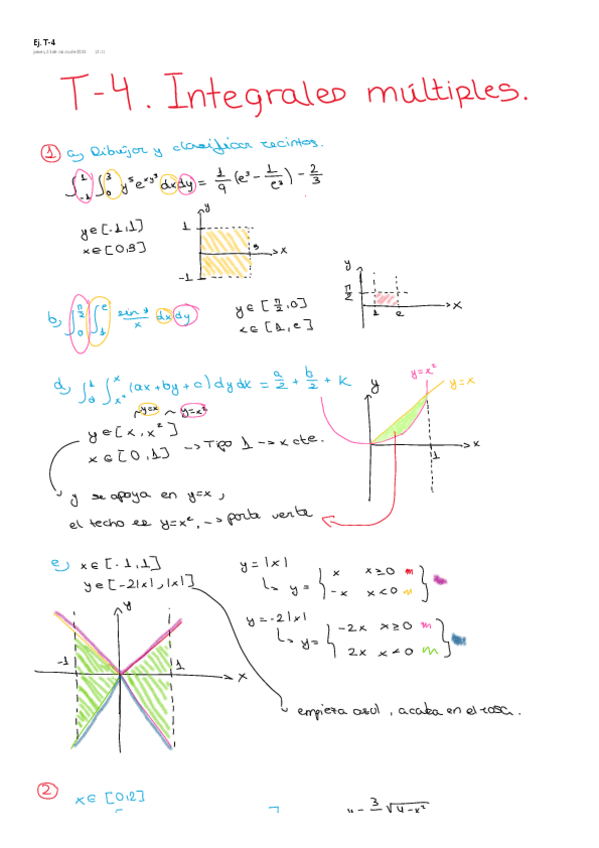 Ej. T-4
T-4. Integrales múltiples.
① a) Dibujar y clasificar recintos.
∫₋₁¹ ∫₀³ y⁵e^{xy³} dxdy = 1/9 (e³ - 1/e³) - 2/3
y∈[-1,1]
x∈[0,3]
y
1
3
x
-1
b) ∫₀^{π/2} ∫₁^e sin y/x dxdy
y∈[π/2,0]
x∈[1,e]
y
π/2
1 e
x
d) ∫₀¹ ∫_{x²}^x (ax+by+c) dydx = a/2 + b/2 + k
y=x y=x²
y∈[x,x²]
x∈[0,1] -> Tipo 1 -> x cte.
y se apoya en y=x,
el techo es y=x², -> parte verde
y
y=x²
y=x
x
1
e) x∈[-1,1]
y∈[-2|x|,|x|]
y=|x|
y= { x x≥0
-x x<0 }
y=-2|x|
y= { -2x x≥0
2x x<0 }
y
-1
1
x
empieza azul, acaba en el rosa.
② x∈[0,2]